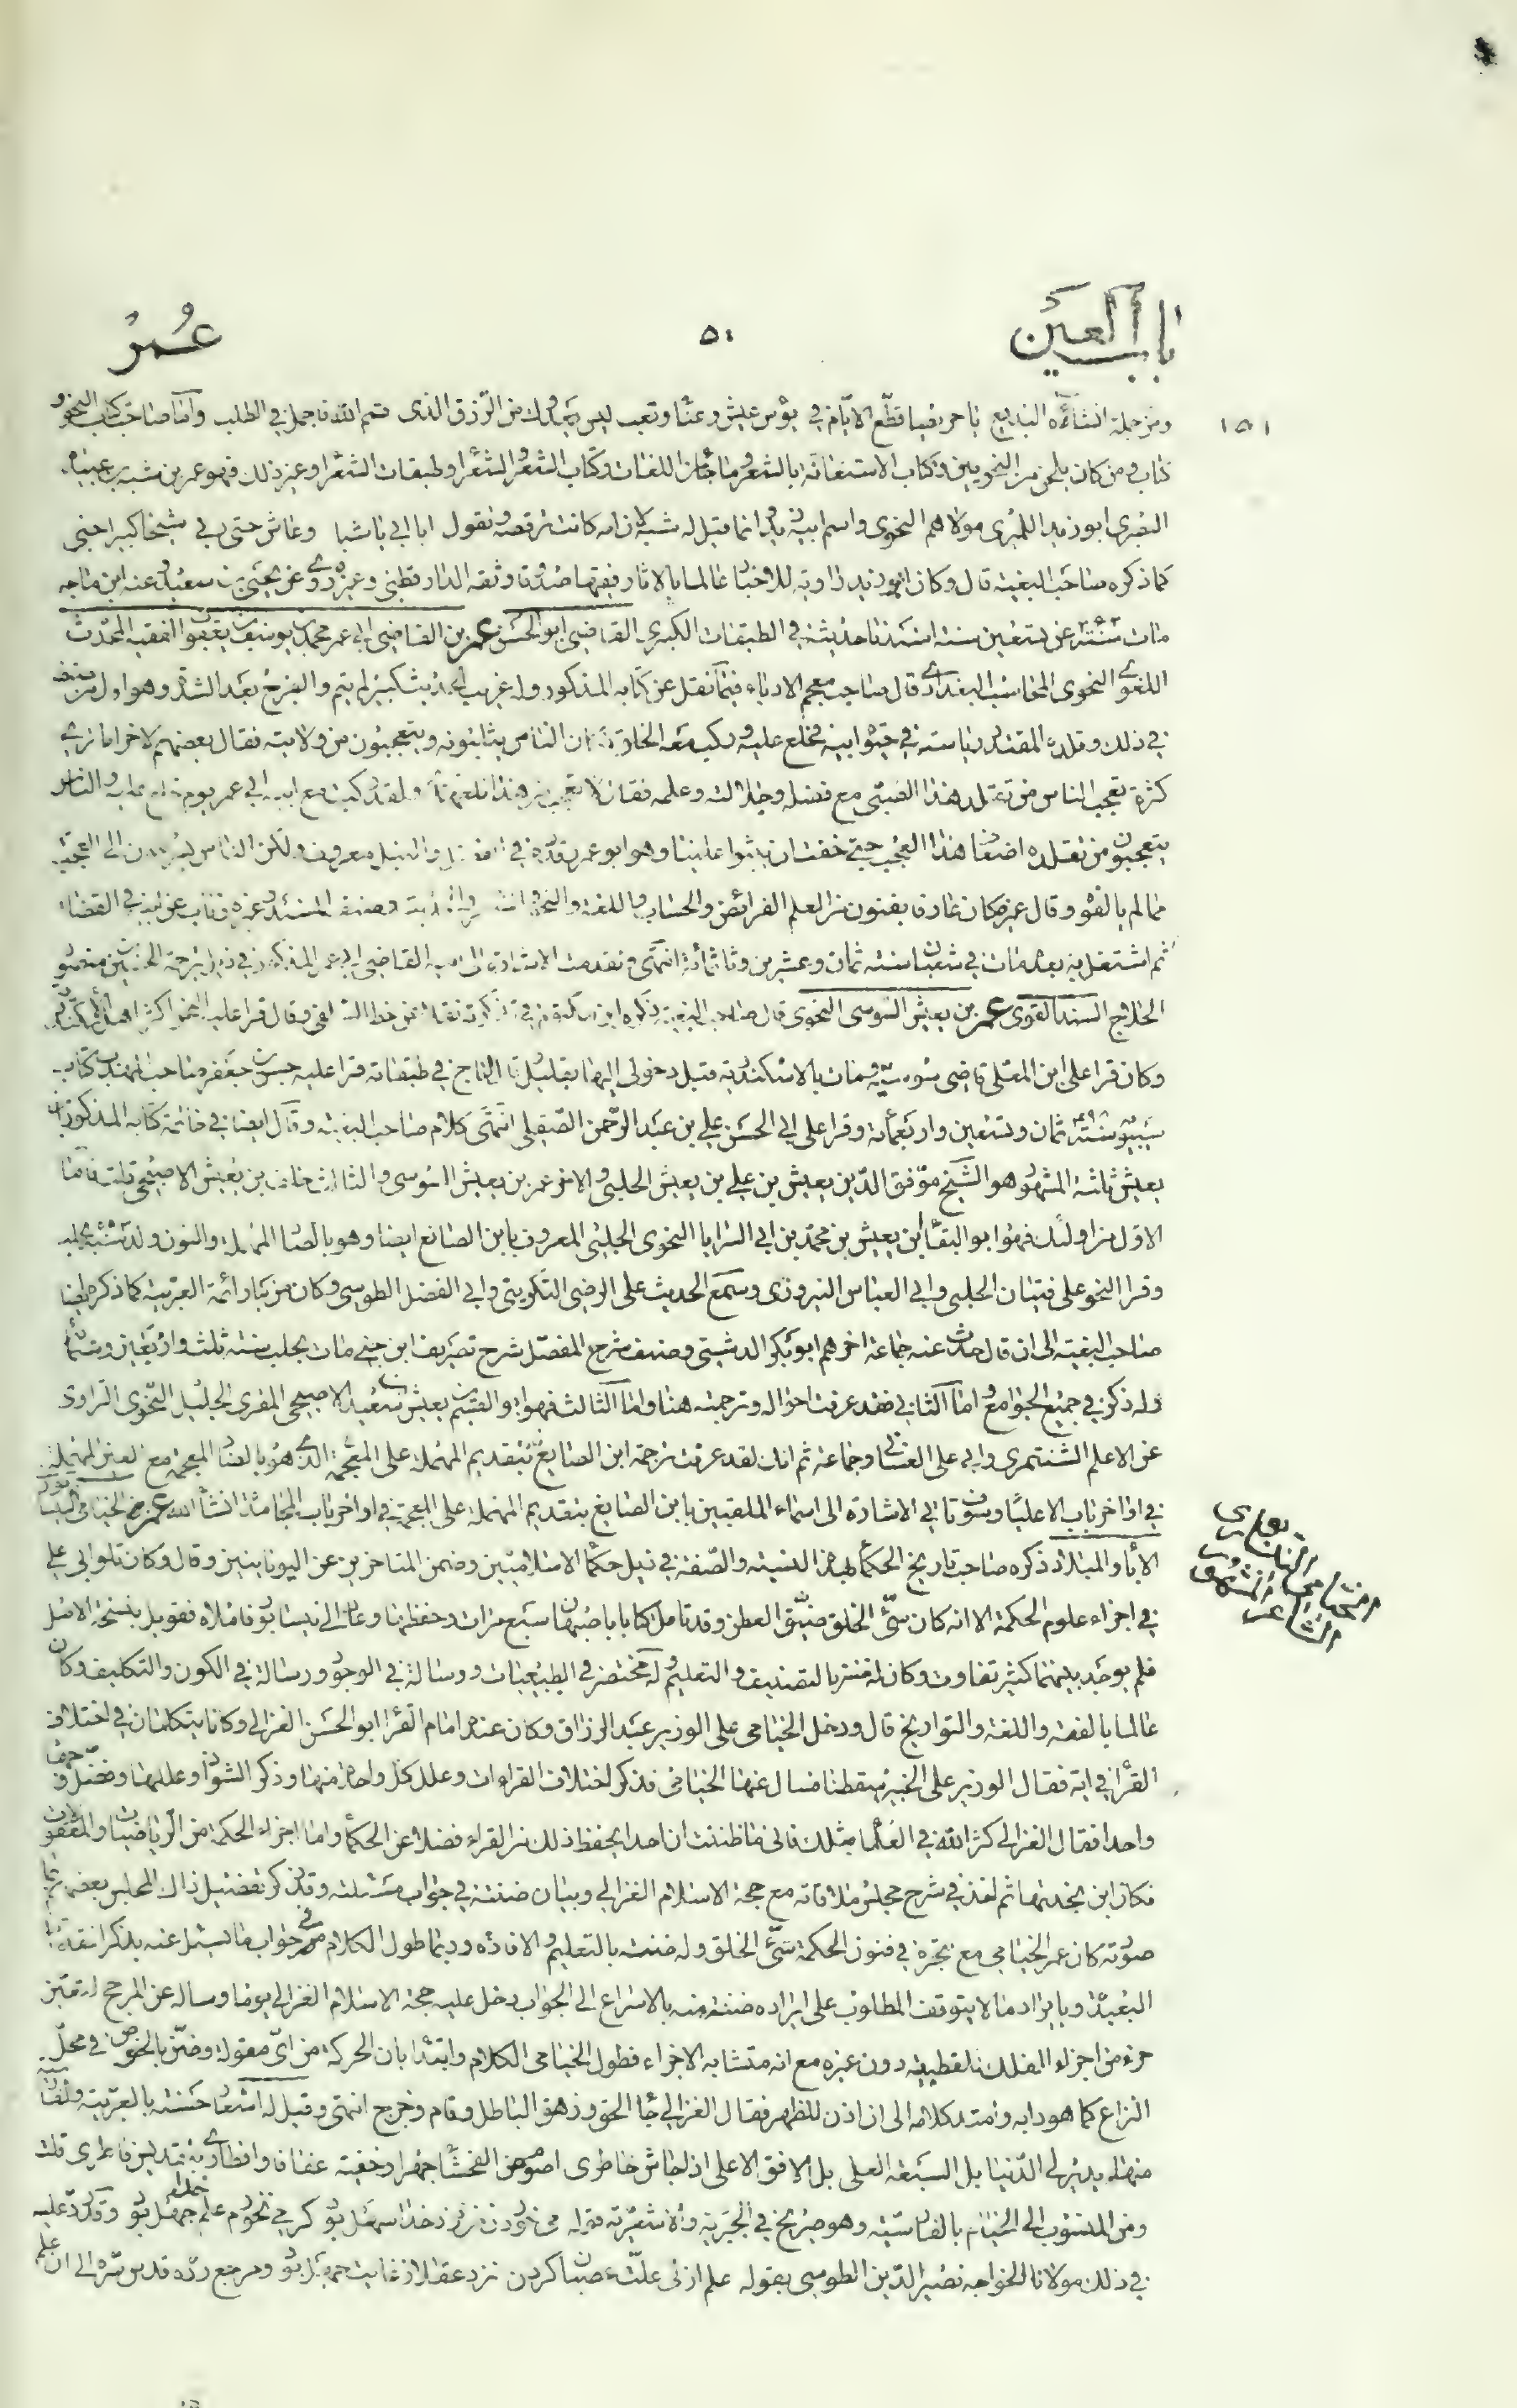 باب العين
٥٠١
عمر
١٥١
ومن جملة انشائه البديع يا حريصا قطع الايام في بؤس عيش وعنا وتعب ليس يعدوك من الرزق الذى قسم الله فاجمل في الطلب واما صاحب كتاب النحو و
كتاب من كان يلحن من النحويين وكتاب الاستعانة بالشعر وما جاء من اللغات وكتاب الشعر والشعراء وطبقات الشعراء وغير ذلك فهو عمر بن شبه بن عبيدة
البصرى ابو زيد النميرى مولاهم النحوى واسم ابيه زيد وانما قيل له شبه لان امه كانت ترقصه وتقول ابا ابي يا شبا وعاش حتى دب شيخا كبيرا
كما ذكره صاحب البغية قال وكان ابو زيد راوية للاخبار عالما بالاثار فقيها صدوقا وثقه الدارقطنى وغيره روى عن يحيى بن سعيد وعنه ابن ماجه
مات سنة عن تسعين سنة اسندنا حديثه في الطبقات الكبرى القاضى ابو الحسن عمر بن القاضى ابي عمر محمد بن يوسف بن يعقوب الفقيه المحدث
اللغوى النحوى المحاسب البغدادى قال صاحب معجم الادباء فيما نقل عن كتابه المذكور وله غريب الحديث كبير لم يتم والفرج بعد الشدة وهو اول من صنف
في ذلك وقلده المقتدر رياسته في حيوة ابيه فخلع عليه وركب معه الناس يثلبونه ويتعجبون من ولايته فقال بعضهم لاخر اما ترى
كثرة تعجب الناس من تقلد هذا الصبى مع فضله وجلالته وعلمه فقال لا تعجب من هذا فلعهدى ولقد ركبت مع ابيه ابي عمر يوم خلع عليه والناس
يتعجبون من تقلده اضعاف هذا العجب حتى خفت ان يثبوا علينا وهو ابو عمر وقدره في الفضل والنبل معروف ولكن الناس يسرعون الى العجب
مما لم يالفوه وقال غيره كان عارفا بفنون من العلم الفرائض والحساب واللغة والنحو وصنف المسند وغيره وناب عن ابيه في القضاء
ثم اشتغل به بعده مات في شعبان سنة ثمان وعشرين وثلثمائة انتهى وتقدمت الاشارة الى ابيه القاضى ابي عمر المذكور في ذيل ترجمة الحسين بن منصور
الحلاج السند القوى عمر بن يعيش السوسى النحوى قال صاحب البغية ذكره ابن مكتوم في تذكرته نقلا عن خط السلفى وقال قرا عليه النحو اكثر اهل الاسكندرية
وكان قرا على ابن المعلى قاضى سوسة ومات بالاسكندرية قبل دخولى اليها بقليل قال التاج في طبقاته قرا عليه حسن بن جعفر صاحب المهذب كتاب
سيبويه سنة ثمان وتسعين واربعمائة وقرا على ابي الحسن علي بن عبد الرحمن الصقلى انتهى كلام صاحب البغية وقال ايضا في خاتمة كتابه المذكور ابن
يعيش ثلثة المشهور هو الشيخ موفق الدين يعيش بن علي بن يعيش الحلبى والاخر عمر بن يعيش السوسى والثالث خلف بن يعيش الاصبحى قلت فاما
الاول من اولئك فهو ابو البقاء ابن يعيش بن محمد بن ابي السرايا النحوى الحلبى المعروف بابن الصانع ايضا وهو بالصاد المهملة والنون ولد سنة بحلب
وقرا النحو على فتيان الحلبى وابي العباس النيروزى وسمع الحديث على الرضى التكريتى وابي الفضل الطوسى وكان من كبار ائمة العربية كما ذكره ايضا
صاحب البغية الى ان قال حدث عنه جماعة اخرهم ابو بكر الدشتى وصنف شرح المفصل شرح تصريف ابن جنى مات بحلب سنة ثلث واربعين وستمائة
وله ذكر في جميع الجوامع واما الثانى فقد عرفت احواله وترجمته هنا واما الثالث فهو ابو القسم بن يعيش بن سعيد الاصبحى المقرى الجليل النحوى الراوى
عن الاعلم الشنتمرى وابي على الغسانى وجماعة ثم انك لقد عرفت ترجمة ابن الصايغ بتقديم المهملة على المعجمة الذى هو بالضاد المعجمة مع العين المهملة
في اواخر باب الاعليا وسوف تاتي الاشارة الى اسماء الملقبين بابن الصايغ بتقديم المهملة على المعجمة في اواخر باب المحامد انشاء الله عمر الخيامى النيسابورى
الاباء والميلاد ذكره صاحب تاريخ الحكماء بهذه النسبة والصفة في ذيل حكماء الاسلاميين وضمن المتاخرين عن اليونانيين وقال وكان تلو ابي على
في اجزاء علوم الحكمة الا انه كان سىء الخلق ضيق العطن وقد تامل كتابا باصبهان سبع مرات وحفظها وعاد الى نيسابور فاملاه فقوبل بنسخة الاصل
فلم يوجد بينهما كثير تفاوت وكان له ضنة بالتصنيف والتعليم وله مختصر في الطبيعيات ورسالة في الوجود ورسالة في الكون والتكليف وكان
عالما بالفقه واللغة والتواريخ قال ودخل الخيامى على الوزير عبد الرزاق وكان عنده امام القراء ابو الحسن الغزالى وكانا يتكلمان في اختلاف
القراء في اية فقال الوزير على الخبير سقطنا فسال عنها الخيامى فذكر اختلاف القراءات وعلل كل واحد منها وذكر الشواذ وعللها وفضل وجها
واحدا فقال الغزالى كثر الله في العلماء مثلك فانى ما ظننت ان احدا يحفظ ذلك من القراء فضلا عن الحكماء واما اجزاء الحكمة من الرياضيات والمعقولات
فكان ابن بجدتها ثم اخذ في شرح مجلس ملاقاته مع حجة الاسلام الغزالى وبيان ضنته في جواب مسئلته وقد ذكر تفضيل ذاك المجلس بعضهم بما
صورته كان عمر الخيامى مع تبحره في فنون الحكمة سىء الخلق وله ضنة بالتعليم والافادة وربما طول الكلام في جواب ما يسئل عنه بذكر المقدمات
البعيدة وبايراد ما لا يتوقف المطلوب على ايراده ضنة منه بالاسراع الى الجواب دخل عليه حجة الاسلام الغزالى يوما وساله عن المرجح لتعين
جزء من اجزاء الفلك للقطبية دون غيره مع انه متشابه الاجزاء فطول الخيامى الكلام وابتدا بان الحركة من اى مقولة وضن بالخوض في محل
النزاع كما هو دابه وامتد كلامه الى ان اذن للظهر فقال الغزالى جاء الحق وزهق الباطل وقام وخرج انتهى وقيل له اشعار حسنة بالعربية والفارسية
منها يدين لى الدنيا بل السبعة العلى بل الافق الاعلى اذا جاش خاطرى اصوم عن الفحشاء جهرا وخفية عفافا وافطارى بتقديس فاطرى قلت
ومن المنسوب الى الخيام بالفارسية وهو صريح في الجبرية والاشعرية قوله مى خوردن من نزد خدا سهل بود كر مى نخورم علم خدا جهل بود وقد رد عليه
في ذلك مولانا الخواجه نصير الدين الطوسى بقوله علم ازلى علت عصيان كردن نزد عقلا ز غايت جهل بود ومرجع رده قدس سره الى ان علم
الشاعر